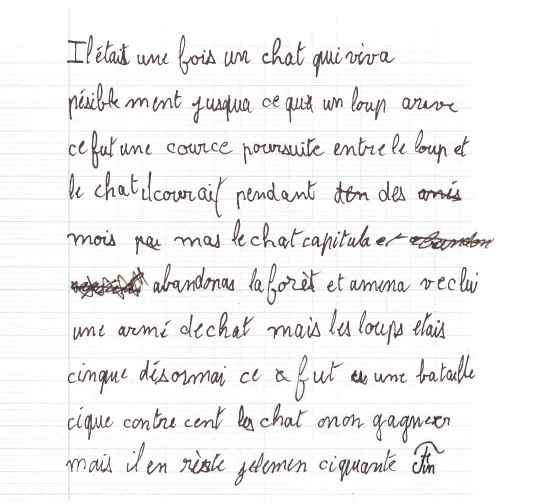 Il était une fois un chat qui viva
pésible ment jusqua ce que un loup arave
ce fut une cource poursuite entre le loup et
le chat il courait pendant des
mois mas le chat capitula et
abandonas la forèt et amena vec lui
une armé de chat mais les loups etais
cinque désormai ce fut une bataille
cique contre cent les chat onon gagner
mais il en rèste jelemen ciquante Fin